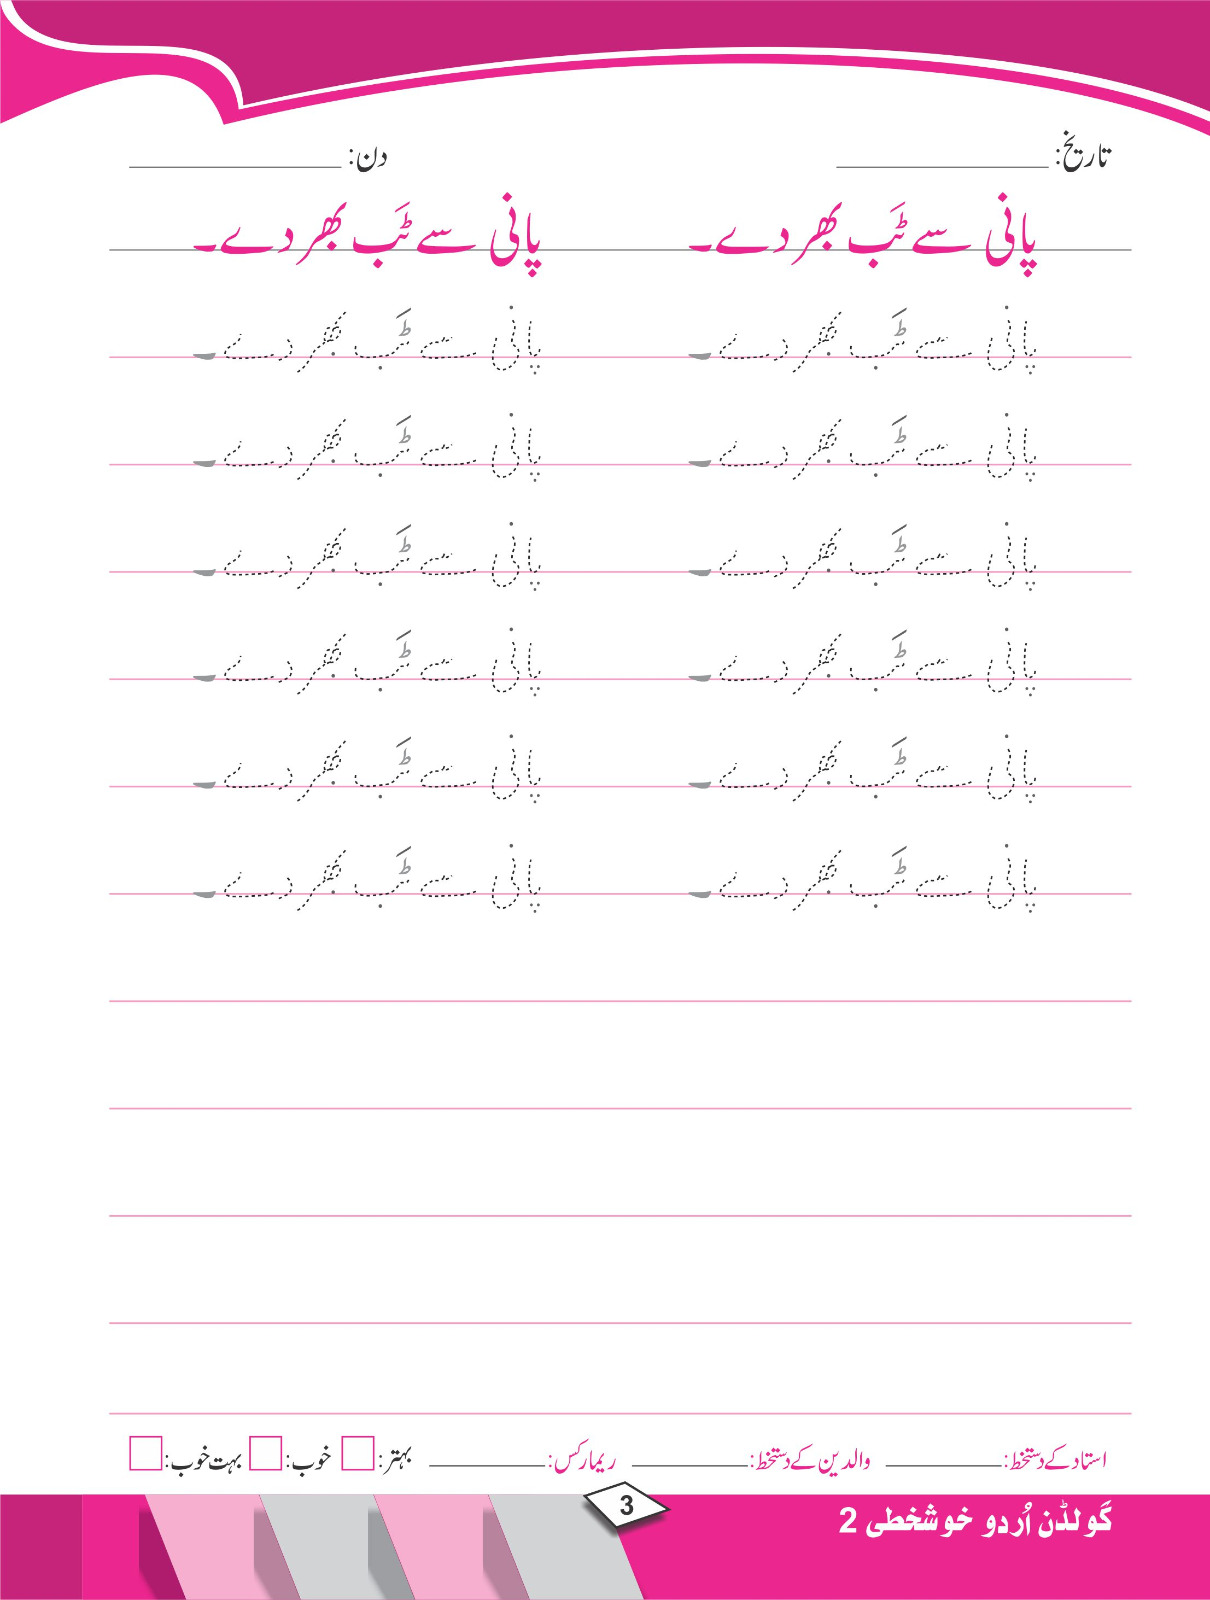 تاریخ: ____________ دن: ____________
پانی سے ٹَب بھر دے۔ پانی سے ٹَب بھر دے۔
پانی سے ٹَب بھر دے۔ پانی سے ٹَب بھر دے۔
پانی سے ٹَب بھر دے۔ پانی سے ٹَب بھر دے۔
پانی سے ٹَب بھر دے۔ پانی سے ٹَب بھر دے۔
پانی سے ٹَب بھر دے۔ پانی سے ٹَب بھر دے۔
پانی سے ٹَب بھر دے۔ پانی سے ٹَب بھر دے۔
پانی سے ٹَب بھر دے۔ پانی سے ٹَب بھر دے۔
استاد کے دستخط: ________ والدین کے دستخط: ________ ریمارکس: ________ بہتر: □ خوب: □ بہت خوب: □
گولڈن اُردو خوشخطی 2
3